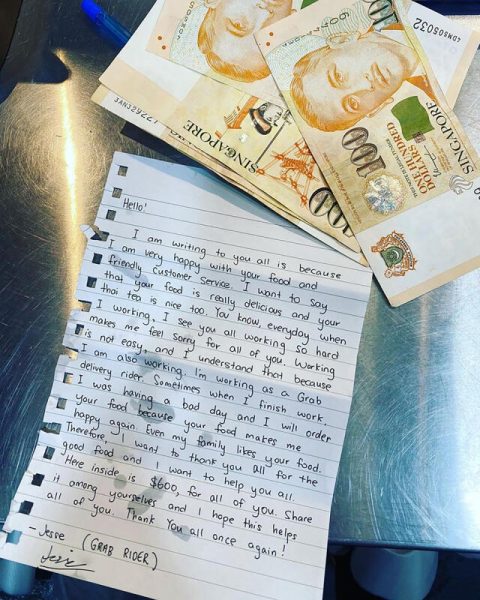 100
ONE HUNDRED
DOLLARS
SINGAPORE
SINGAPORE
100
Hello!
I am writing to you all is because
I am very happy with your food and
friendly customer service. I want to say
that your food is really delicious and your
thai tea is nice too. You know, everyday when
I working, I see you all working so hard
makes me feel sorry for all of you. Working
is not easy, and I understand that because
I am also working. I'm working as a Grab
delivery rider. Sometimes when I finish work,
I was having a bad day and I will order
your food because your food makes me
happy again. Even my family likes your food.
Therefore, I want to thank you all for the
good food and I want to help you all.
Here inside is $600, for all of you. Share
it among yourselves and I hope this helps
all of you. Thank You all once again!
- Jesse (GRAB RIDER)